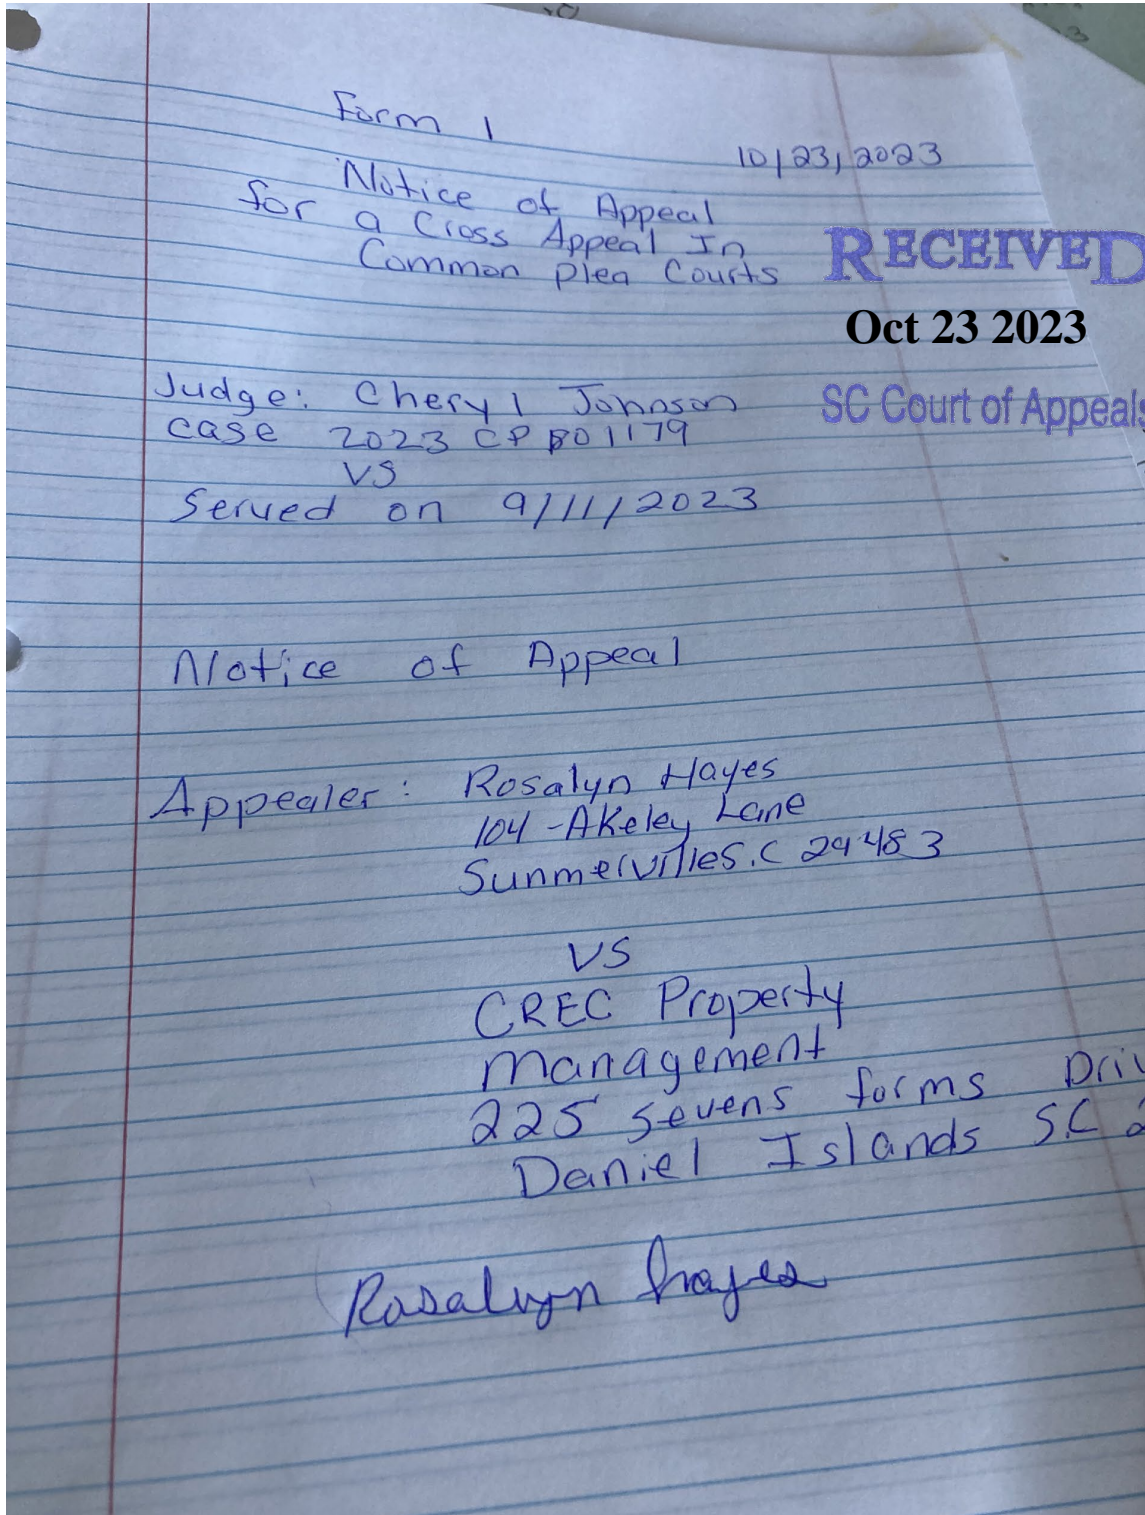 Form 1
10/23/2023
Notice of Appeal
for a Cross Appeal In
Common Plea Courts
RECEIVED
Oct 23 2023
SC Court of Appeals
Judge: Cheryl Johnson
case 2023 CP 801179
VS
Served on 9/11/2023
Notice of Appeal
Appealer: Rosalyn Hayes
104 - Akeley Lane
Sunmerville S.C 29483
VS
CREC Property
management
225 sevens forms Driv
Daniel Islands S.C 2
Rosalyn Hayes